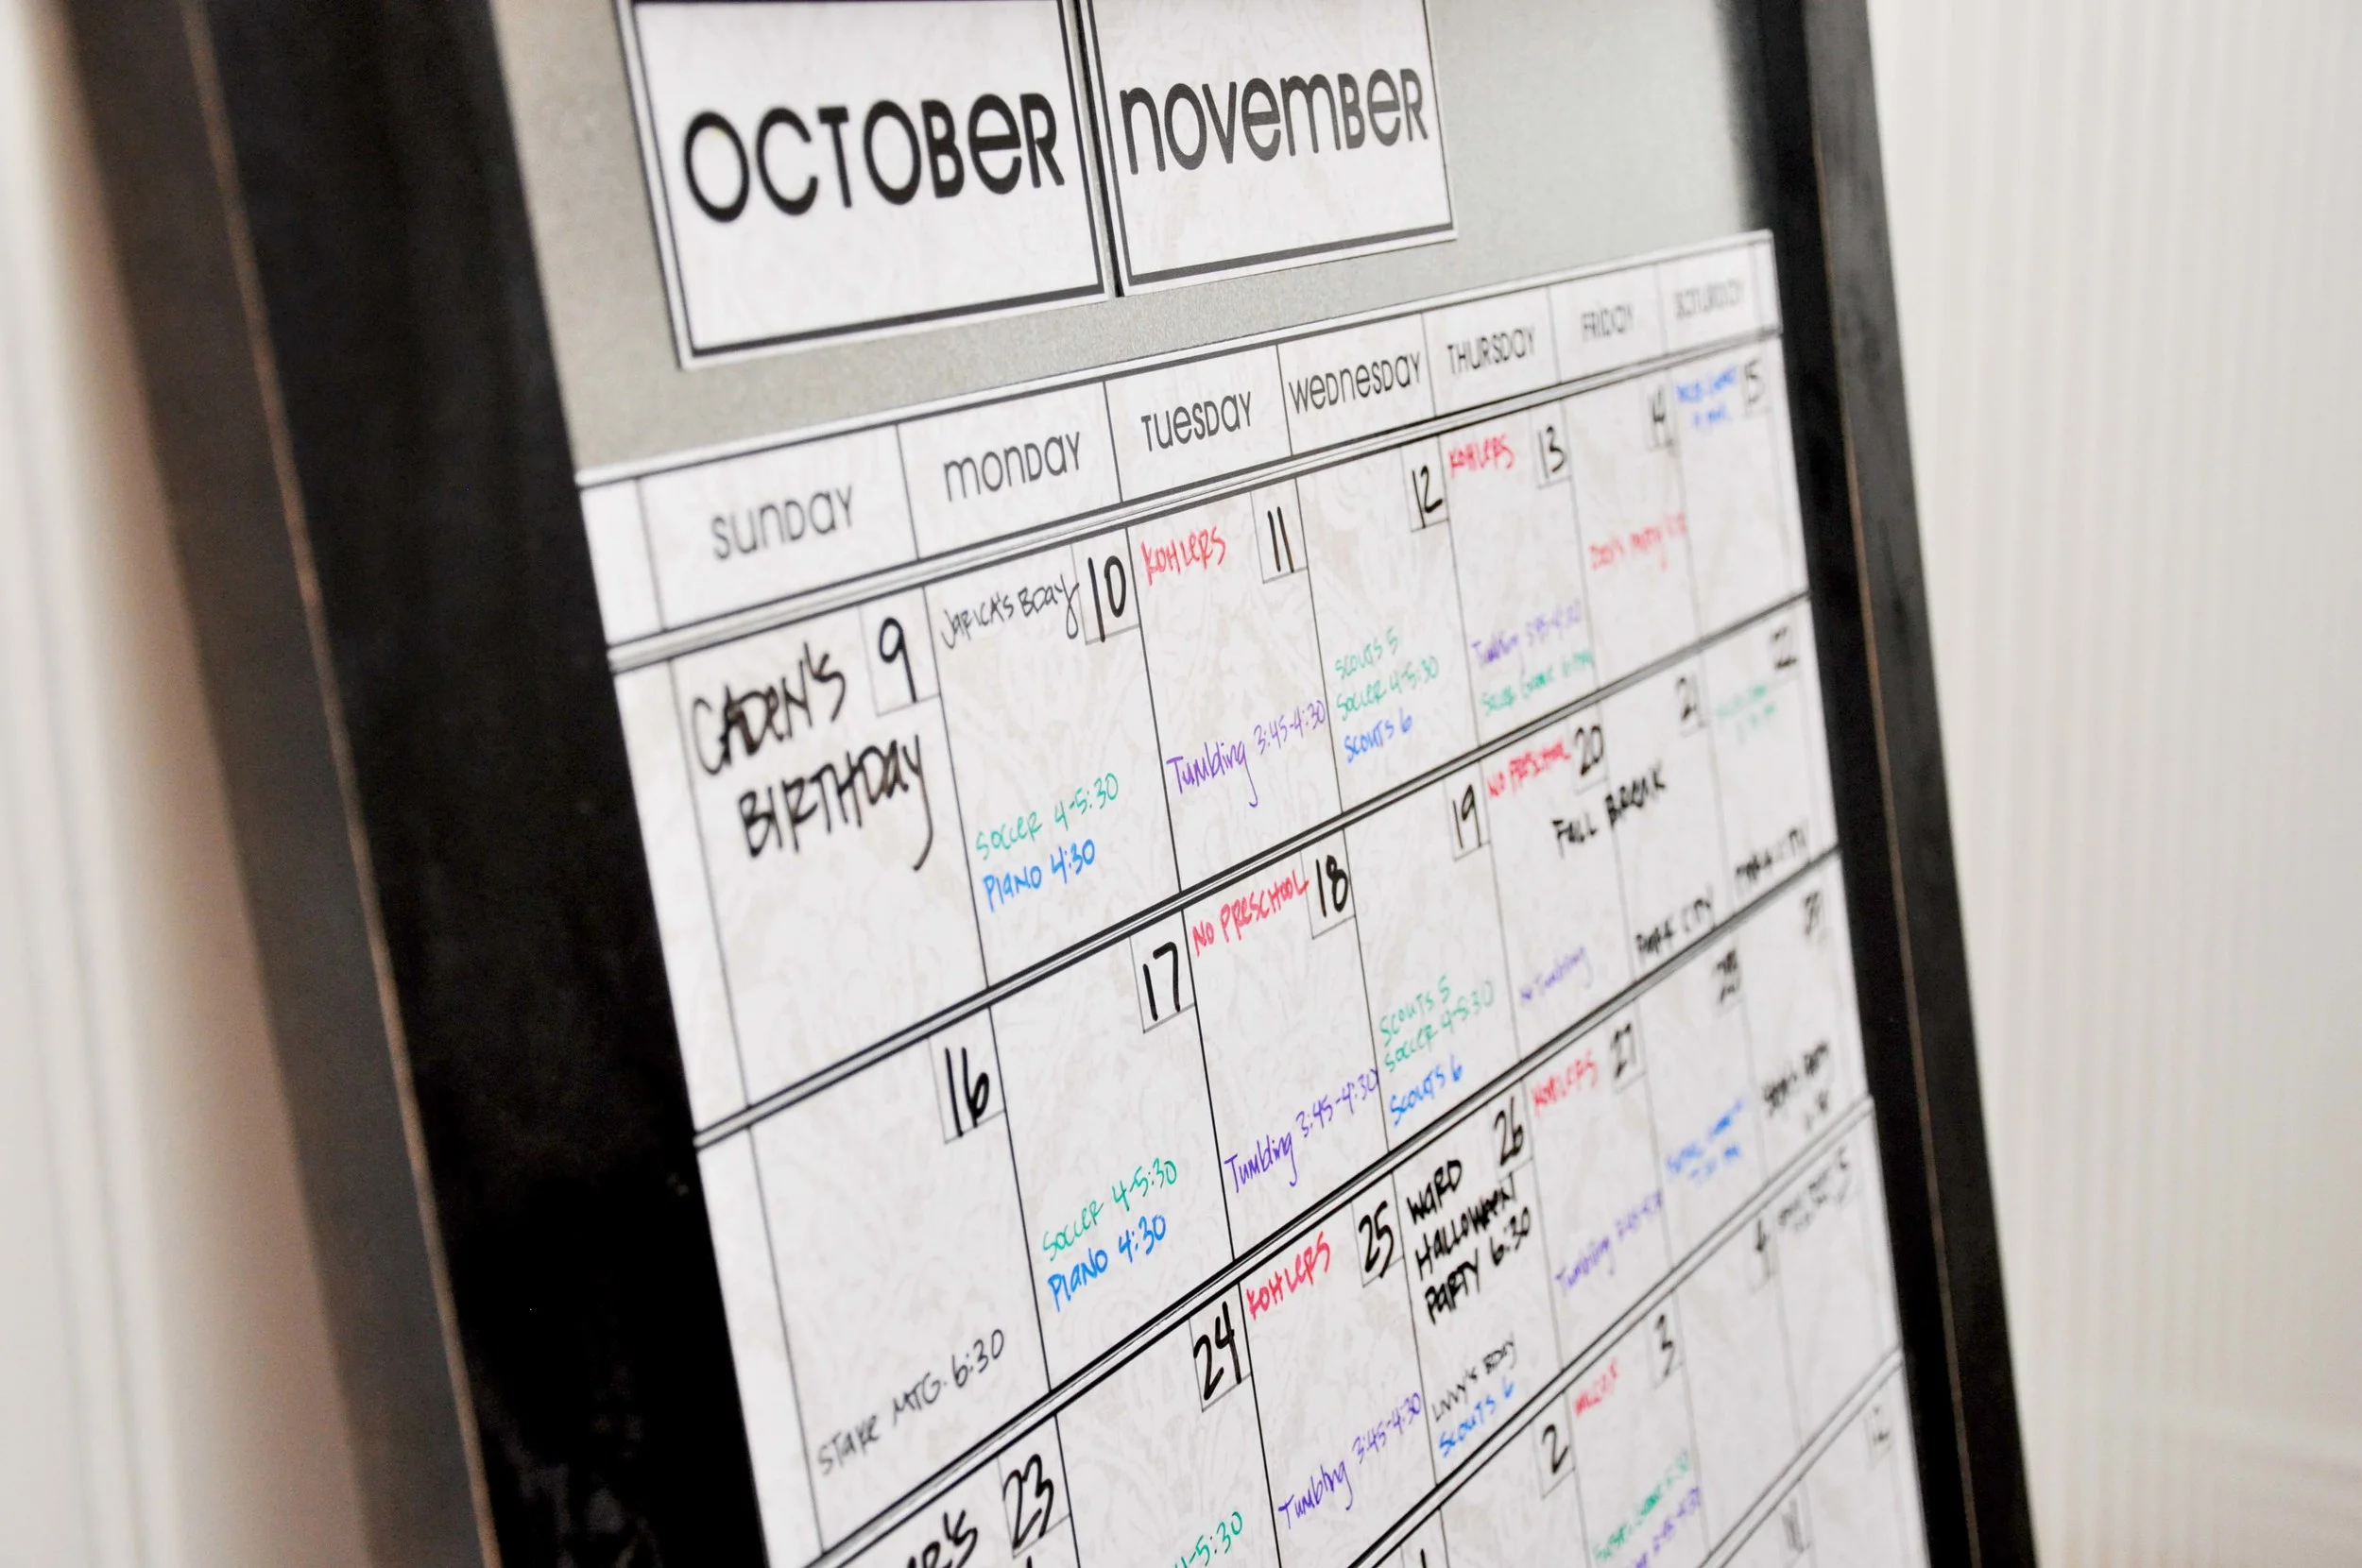 OCTOBER
NOVEMBER
SUNDAY
MONDAY
TUESDAY
WEDNESDAY
THURSDAY
FRIDAY
SATURDAY
9
CADEN'S
BIRTHDAY
10
JARICA'S BDAY
SOCCER 4-5:30
PIANO 4:30
11
KOHLERS
Tumbling 3:45-4:30
12
SCOUTS 5
SOCCER 4-5:30
SCOUTS 6
13
KOHLERS
Tumbling
14
15
16
STAKE MTG. 6:30
17
SOCCER 4-5:30
PIANO 4:30
18
NO PRESCHOOL
Tumbling 3:45-4:30
19
SCOUTS 5
SOCCER 4-5:30
SCOUTS 6
20
NO PRESCHOOL
FALL BREAK
No Tumbling
21
PARK CITY
22
PARK CITY
23
24
25
KOHLERS
Tumbling 3:45-4:30
26
WARD
HALLOWEEN
PARTY 6:30
LIVVY'S BDAY
SCOUTS 6
27
KOHLERS
Tumbling
28
2
3
4
5